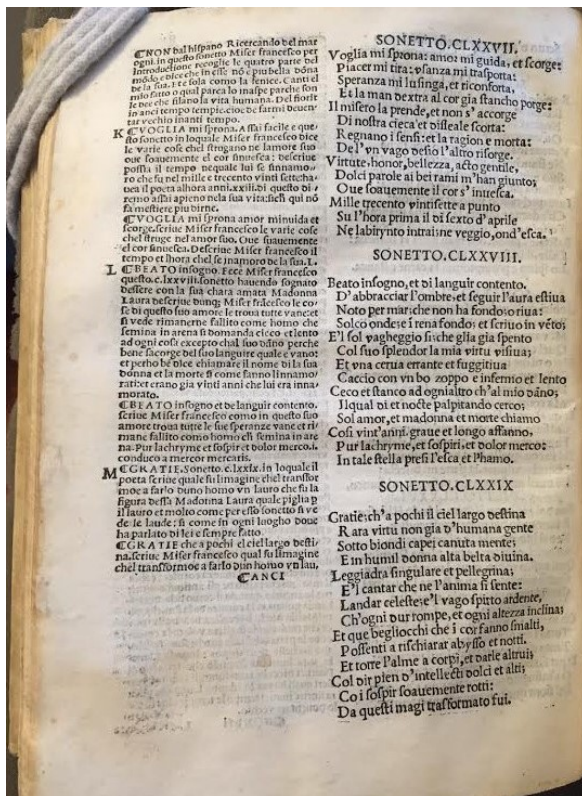 ⁋NON bal hispano Ricercando del mar
ogni. in questo sonetto Miser francesco per
Introductione recoglie le quatro parte del
módo e dice che in esse nó e piu bella dóna
de la sua. Et e sola como la fenice. Canti el
mio fatto o qual parca lo inaspe parche son
le dee che filano la vita humana. Del fiorir
in anci tempo tempie. cioe de farmi deuen
tar vechio inanti tempo.
K ⁋VOGLIA mi sprona. Assai facile e que/
sto sonetto in loquale Miser francesco dice
le varie cose chel strugano ne lamore suo
oue soauemente el cor sinuesca: descriue
possa il tempo nequale lui se sinnamo/
ro che fu nel mille e trecento vinti settecha/
uea il poeta alhora anni.xxiii. di questo di/
remo assai apieno nela sua vita: siche qui nó
fa mestiere piu dirne.
⁋VOGLIA mi sprona amor minuida et
scorge. scriue Miser francesco le varie cose
chel struge nel amor suo. Oue suauemente
el cor sinuesca. Descriue Miser francesco il
tempo et lhora chel se inamoro de la sua. L.
L ⁋BEATO insogno. Ecce Miser francesco
questo.c.lxxviii. sonetto hauendo sognato
dessere con la sua chara amata Madonna
Laura descriue dunq; Miser frácesco le co/
se di questo suo amore le troua tutte vane: et
si vede rimanerne fallito come homo che
semina in arena si domanda cieco et lento
ad ogni cosa excepto chal suo dáno perche
bene sacorge del suo languire quale e vano:
et perho be dice chiamare il nome di la sua
donna et la morte si come fanno linnamo/
rati: et erano gia vinti anni che lui era inna/
morato.
⁋BEATO insogno et de languir contento.
scriue Miser francesco como in questo suo
amore troua tutte le sue speranze vane et ri/
mane fallito como homo ch semina in are
na. Pur lachryme et sospir et dolor merco.i.
conduco a mercor mercaris.
M ⁋GRATIE. Sonetto.c.lxxix. in loquale il
poeta scriue quale fu limagine chel transfor
moe a farlo duno homo vn lauro che fu la
figura dessa Madonna Laura quale piglia p
il lauro et molto come per esso sonetto si ve
de le laude: si come in ogni luogho doue
ha parlato di lei e sempre fatto.
⁋GRATIE che a pochi el ciel largo desti/
na. scriue Miser francesco qual fu limagine
chel transformoe a farlo dun homo vn lau.
⁋CANCI
SONETTO.CLXXVII.
Voglia mi sprona: amor mi guida, et scorge:
Piacer mi tira: vsanza mi trasporta:
Speranza mi lusinga, et riconforta,
Et la man dextra al cor gia stancho porge:
Il misero la prende, et non s'accorge
Di nostra cieca et disleale scorta:
Regnano i sensi: et la ragion e morta:
De l'vn vago desio l'altro risorge.
Virtute, honor, bellezza, acto gentile,
Dolci parole ai bei rami m'han giunto;
Oue soauemente il cor s'inuesca.
Mille trecento vintisette a punto
Su l'hora prima il di sexto d'aprile
Ne labirynto intrai: ne veggio, ond'esca.
SONETTO.CLXXVIII.
Beato insogno, et di languir contento.
D'abbracciar l'ombre, et seguir l'aura estiua
Noto per mar: che non ha fondo o riua:
Solco onde: e i rena fondo: et scriuo in véto;
E'l sol vagheggio si: che glia gia spento
Col suo splendor la mia virtu visiua;
Et vna cerua errante et fuggitiua
Caccio con vn bo zoppo e infermo et lento
Ceco et stanco ad ogni altro ch'al mio dáno;
Il qual di et nocte palpitando cerco;
Sol amor, et madonna et morte chiamo
Cosi vint'anni. graue et longo affanno,
Pur lachryme, et sospiri, et dolor merco:
In tale stella presi l'esca et l'hamo.
SONETTO.CLXXIX
Gratie; ch'a pochi il ciel largo destina
Rara virtu non gia d'humana gente
Sotto biondi capei canuta mente;
E in humil donna alta belta diuina.
Leggiadra singulare et pellegrina;
E'l cantar che ne l'anima si sente:
Landar celeste; e'l vago spirto ardente,
Ch'ogni dur rompe, et ogni altezza inclina;
Et que begliocchi che i cor fanno smalti,
Possenti a rischiarar abysso et notti.
Et torre l'alme a corpi, et darle altrui;
Col dir pien d'intellecti dolci et alti;
Co i sospir soauemente rotti:
Da questi magi trasformato fui.